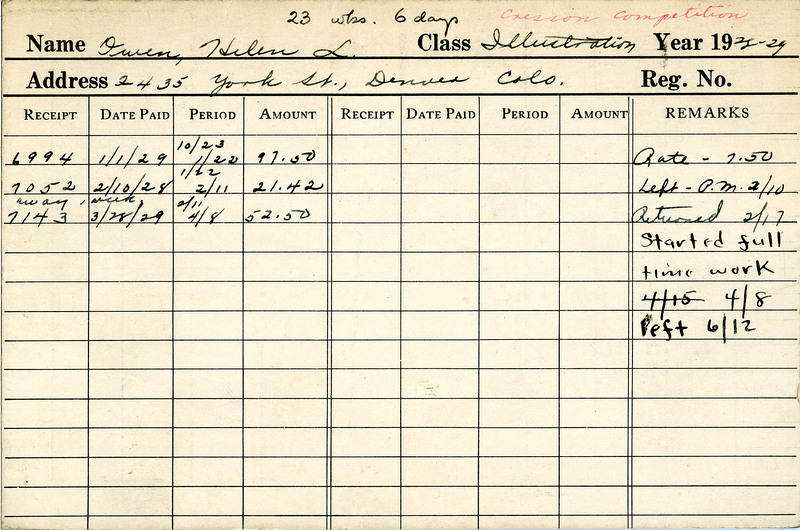 23 wks. 6 days Cresson Competition
Name Owen, Helen L. Class Illustration Year 1928-29
Address 2435 York St., Denver Colo. Reg. No.
RECEIPT DATE PAID PERIOD AMOUNT RECEIPT DATE PAID PERIOD AMOUNT REMARKS
10/23
6994 1/1/29 1/22 97.50 Rate - 7.50
1/22
7052 2/10/28 2/11 21.42 Left - P.M. 2/10
away 1 week 2/11
7143 3/28/29 4/8 52.50 Returned 2/17
Started full
time work
4/15 4/8
Left 6/12